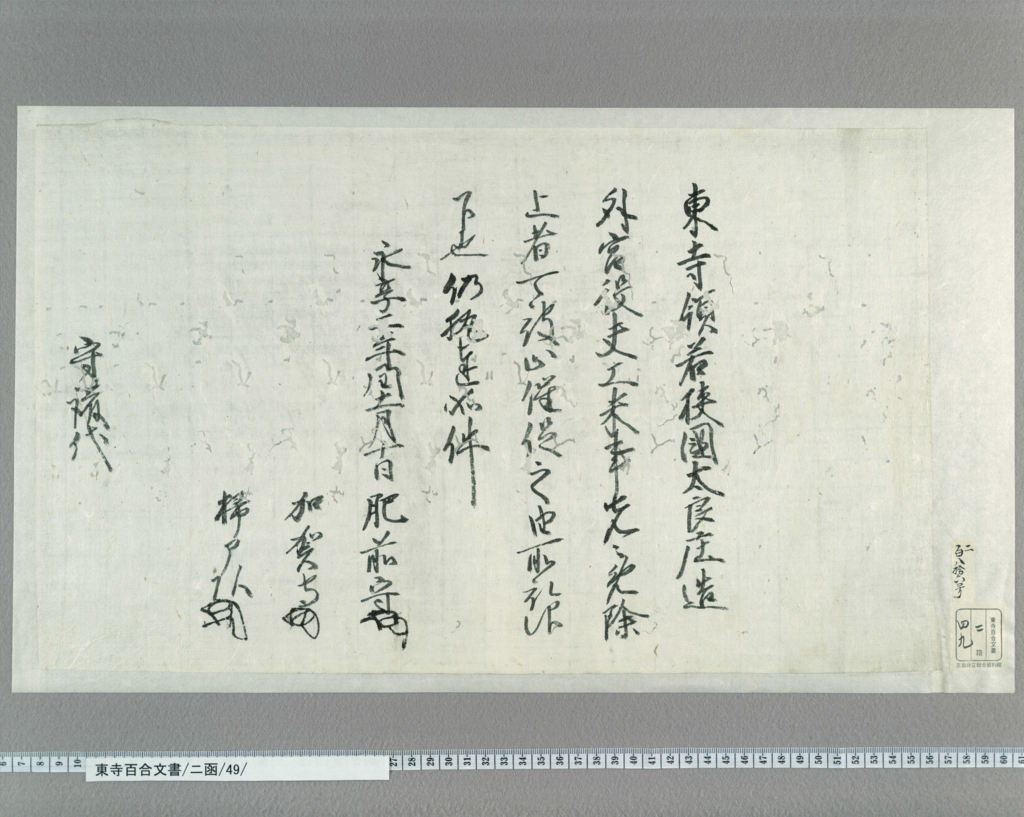 東寺領若狭國太良庄造
外宮役夫工米事先々免除
上者可被止催促之由所被仰
下也仍執達如件
永享二年閏十一月十日 肥前守
加賀守
守護代
東寺百合文書
ニ函
四九
東寺百合文書/ニ函/49/